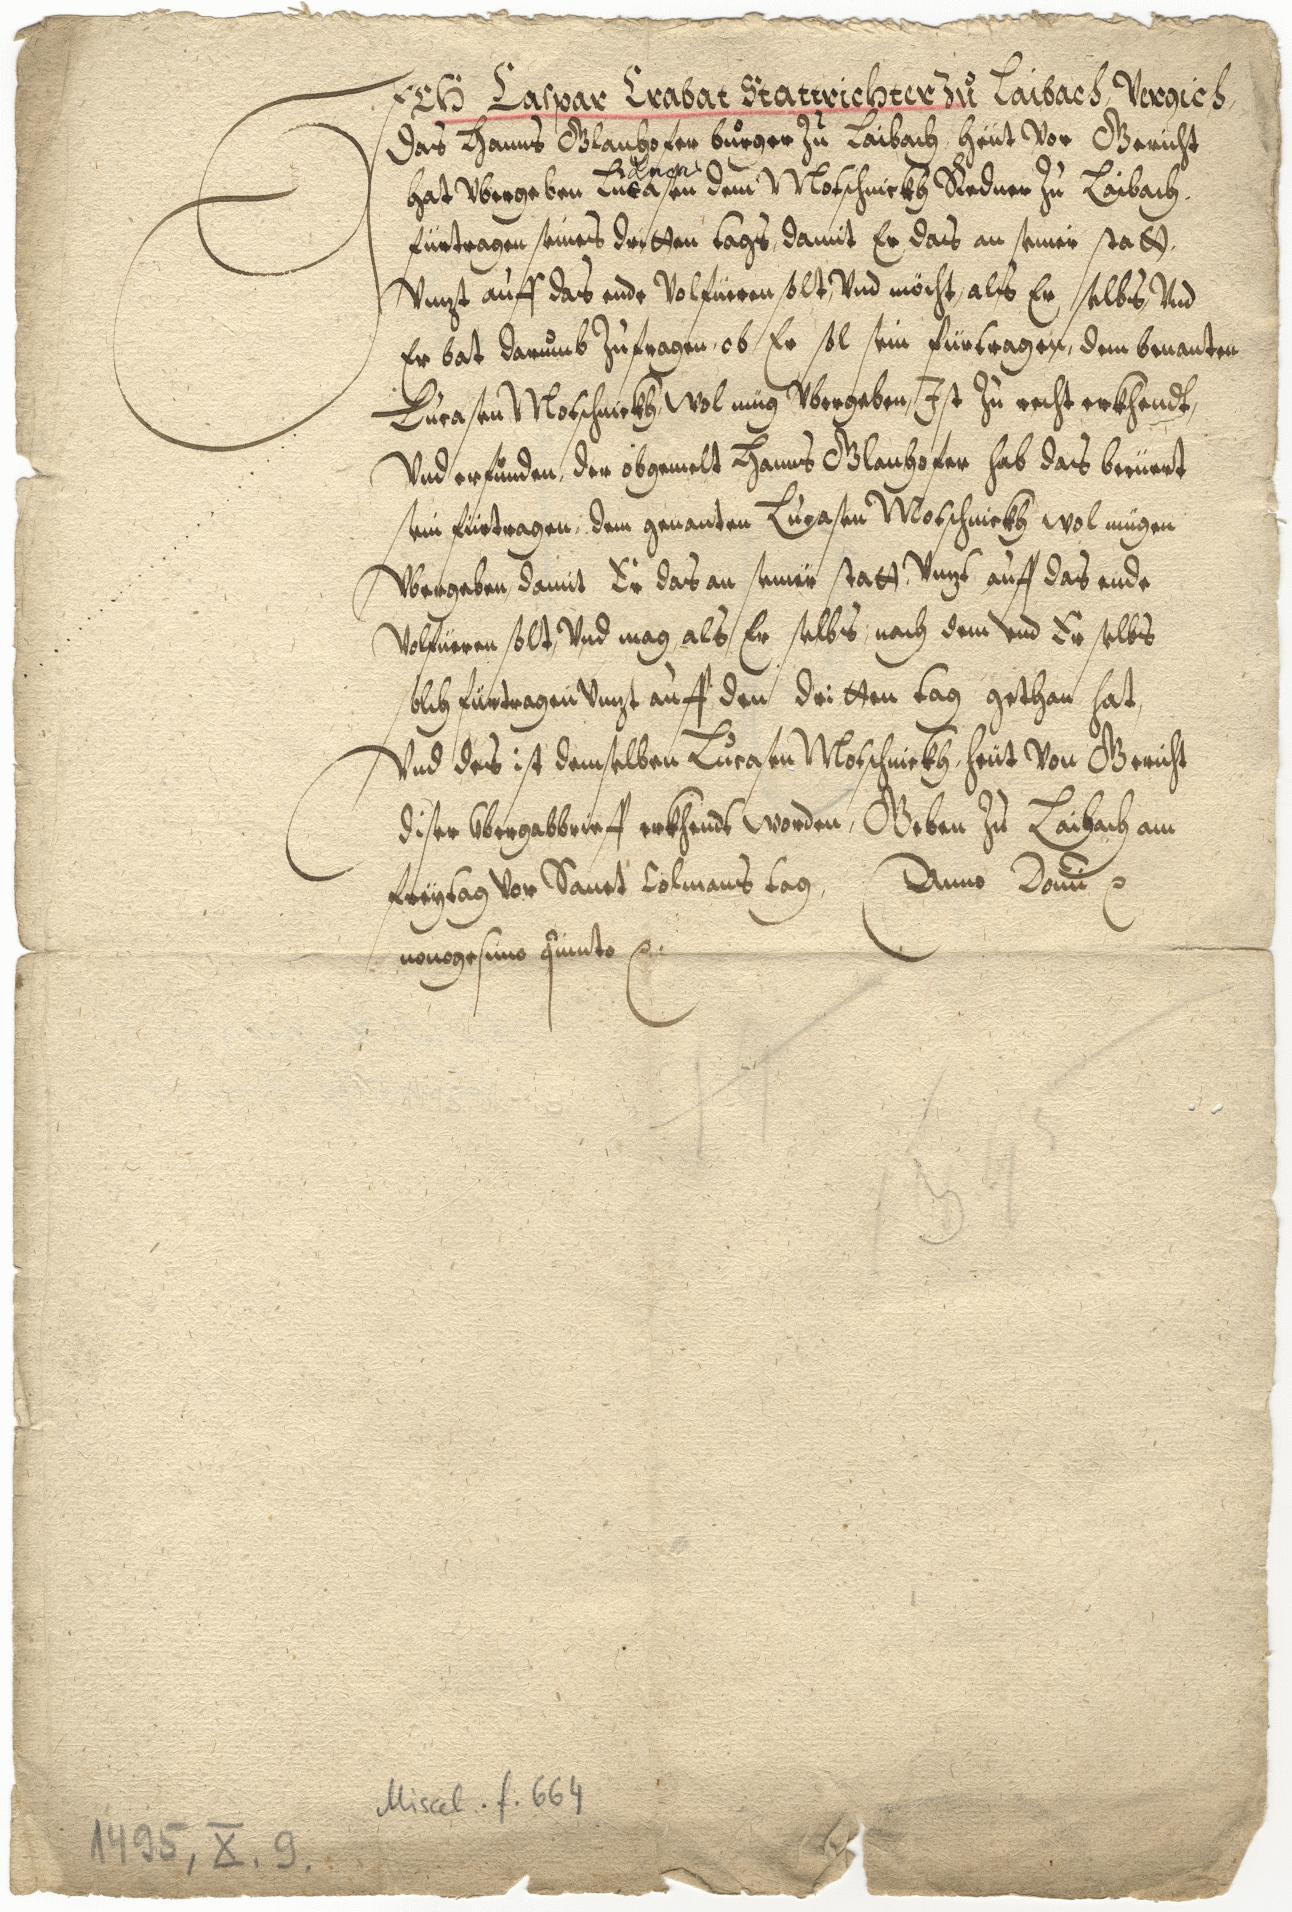 ICH Caspar Crabat Stattrichter Zů Laibach, Vergich,
Das Hanns Glanhofer burger Zů Laibach, heüt vor Gericht
hat Vbergeben Lucasen dem Motschnickh Redner Zů Laibach,
fürtragen seines dritten tags, damit Er das an seiner statt,
Vnnzt auff das ende Volfüeren solt, Vnd möcht, als Er selbs, Vnd
Er bat darůmb Zufragen, ob Er sol sein fürtragen, dem benanten
Lucasen Motschnickh, wol müg Vbergeben, Ist Zů recht erkhendt,
Vnd erfůnden, der obgemelt Hanns Glanhofer hab das berüert
sein fürtragen, dem genanten Lucasen Motschnickh wol mügen
Vbergeben, damit Er das an seiner statt, Vnnzt auff das ende
Volfüeren solt, Vnd mag, als Er selbs, nach dem Vnd Er selbs
solch fürtragen Vnnzt auff den dritten tag gethan hat,
Vnd des ist demselben Lucasen Motschnickh, heüt Von Gericht
diser Vbergabbrieff erkhendt worden, Geben Zů Laibach am
freÿtag Vor Sanct Colmans tag, Anno Domi
nonogesimo quinto
Miscel. f. 664
1495, X. 9.